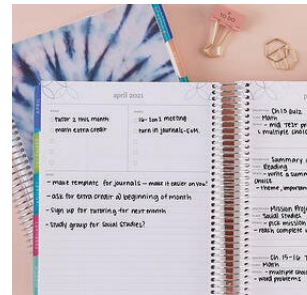 TO DO
april 2025
tutor 2 this month
math extra credit
meeting
turn in journals
- make template for journals - make it easier on you!
- ask for extra credit @ beginning of month
- Sign up for tutoring for next month
- Study group for Social Studies?
Ch 15 Quiz
Math
mid test
multiple
Summary
Reading
- write a summ
- theme, important
Mission Proj
Social Studies
- pick mission
reach complete
Ch. 15-16
Math
- multiple
word problems